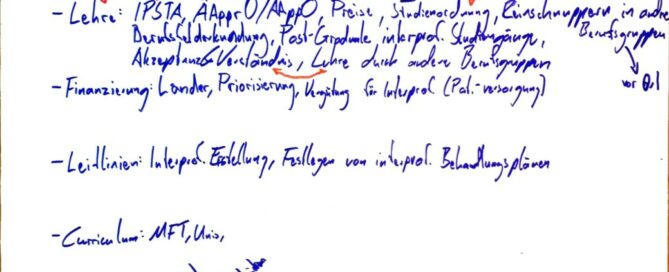 - Lehre: IPSTA, ÄApprO/AAppO, Preise, Studienordnung, Reinschnuppern in andere
Berufsfelderkundung, Post-Graduale interprof. Studiengänge, Berufsgruppen
Akzeptanz & Verständnis, Lehre durch andere Berufsgruppen
- Finanzierung: Länder, Priorisierung, Vergütung für Interprof (Pal.-versorgung)
- Leitlinien: Interprof. Erstellung, Festlegen von interprof. Behandlungsplänen
- Curriculum: MFT, Unis,